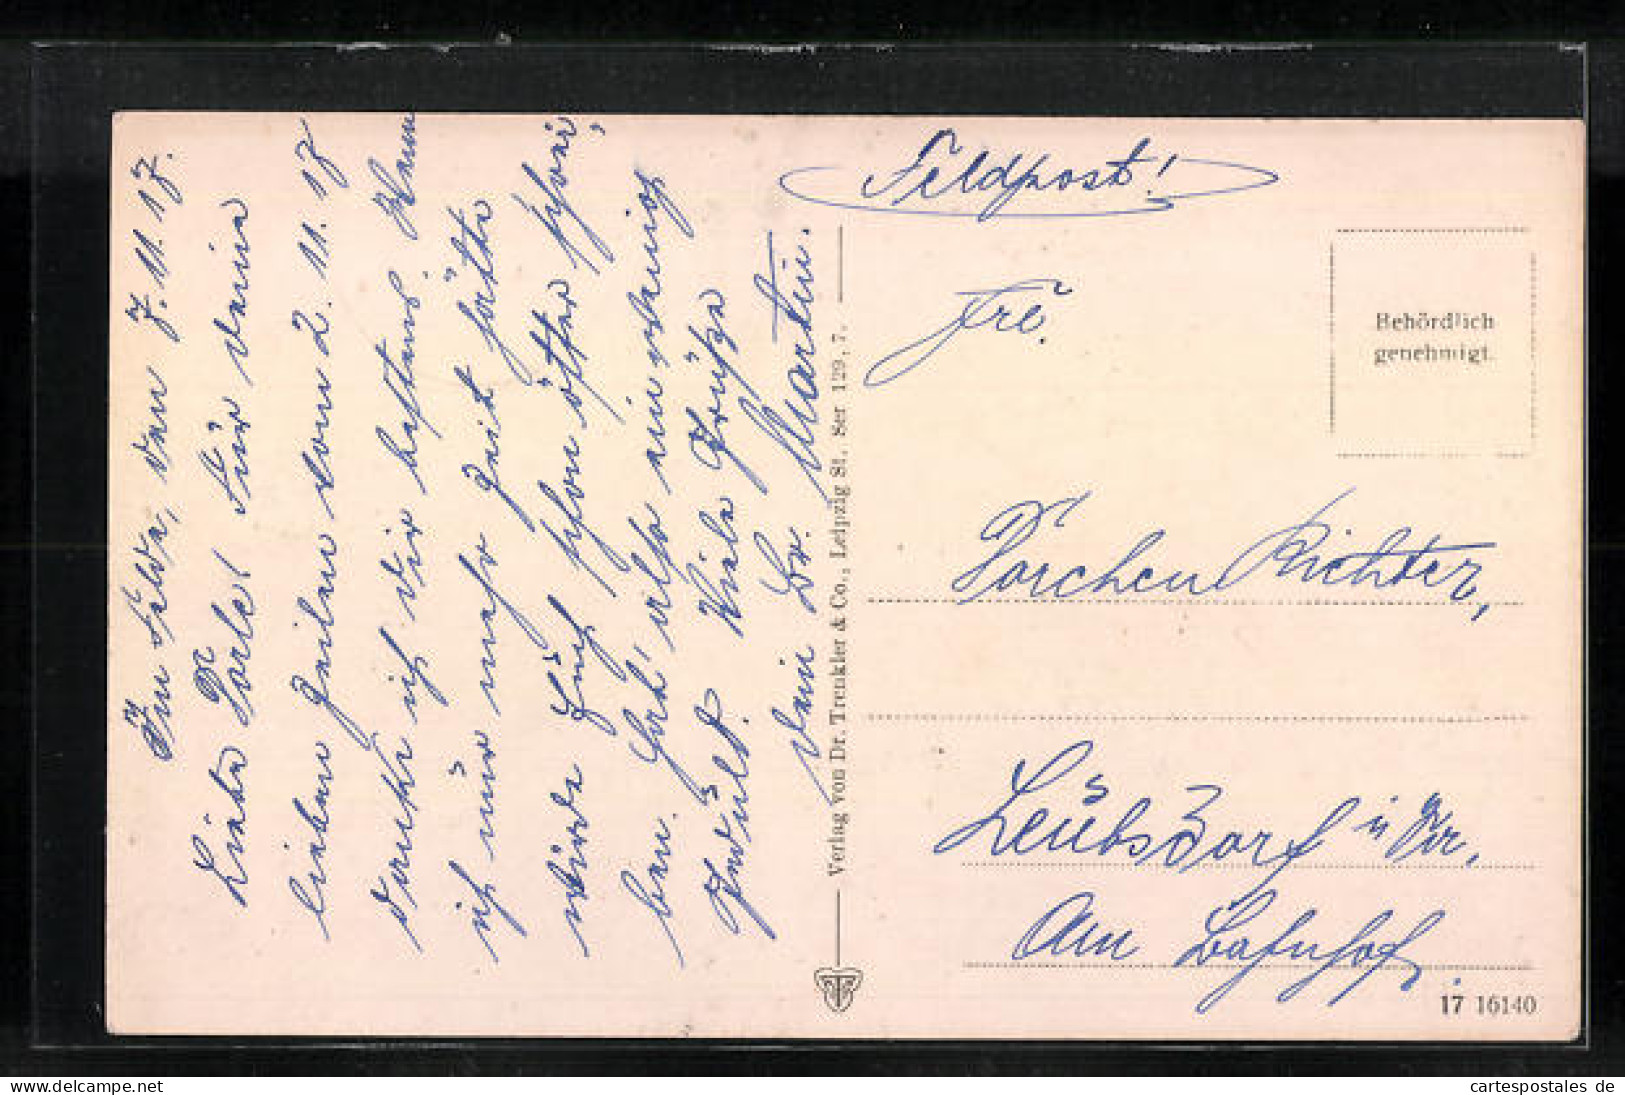 Im Felde, den 7.11.17.
Liebe Dorle! Für deine
lieben Zeilen vom 2.11.17
danke ich dir bestens. Wenn
ich nur mehr Zeit hätte
würde Euch schon öfter schrei,
ben. Habt also ein wenig
Geduld. Viele Grüße
dein Br. Martin.
Verlag von Dr. Trenkler & Co., Leipzig St., Ser 129, 7.
Feldpost!
Behördlich
genehmigt.
Dorchen Richter,
Leubsdorf
Am Bahnhof.
17 16140
delcampe.net
cartespostales_de